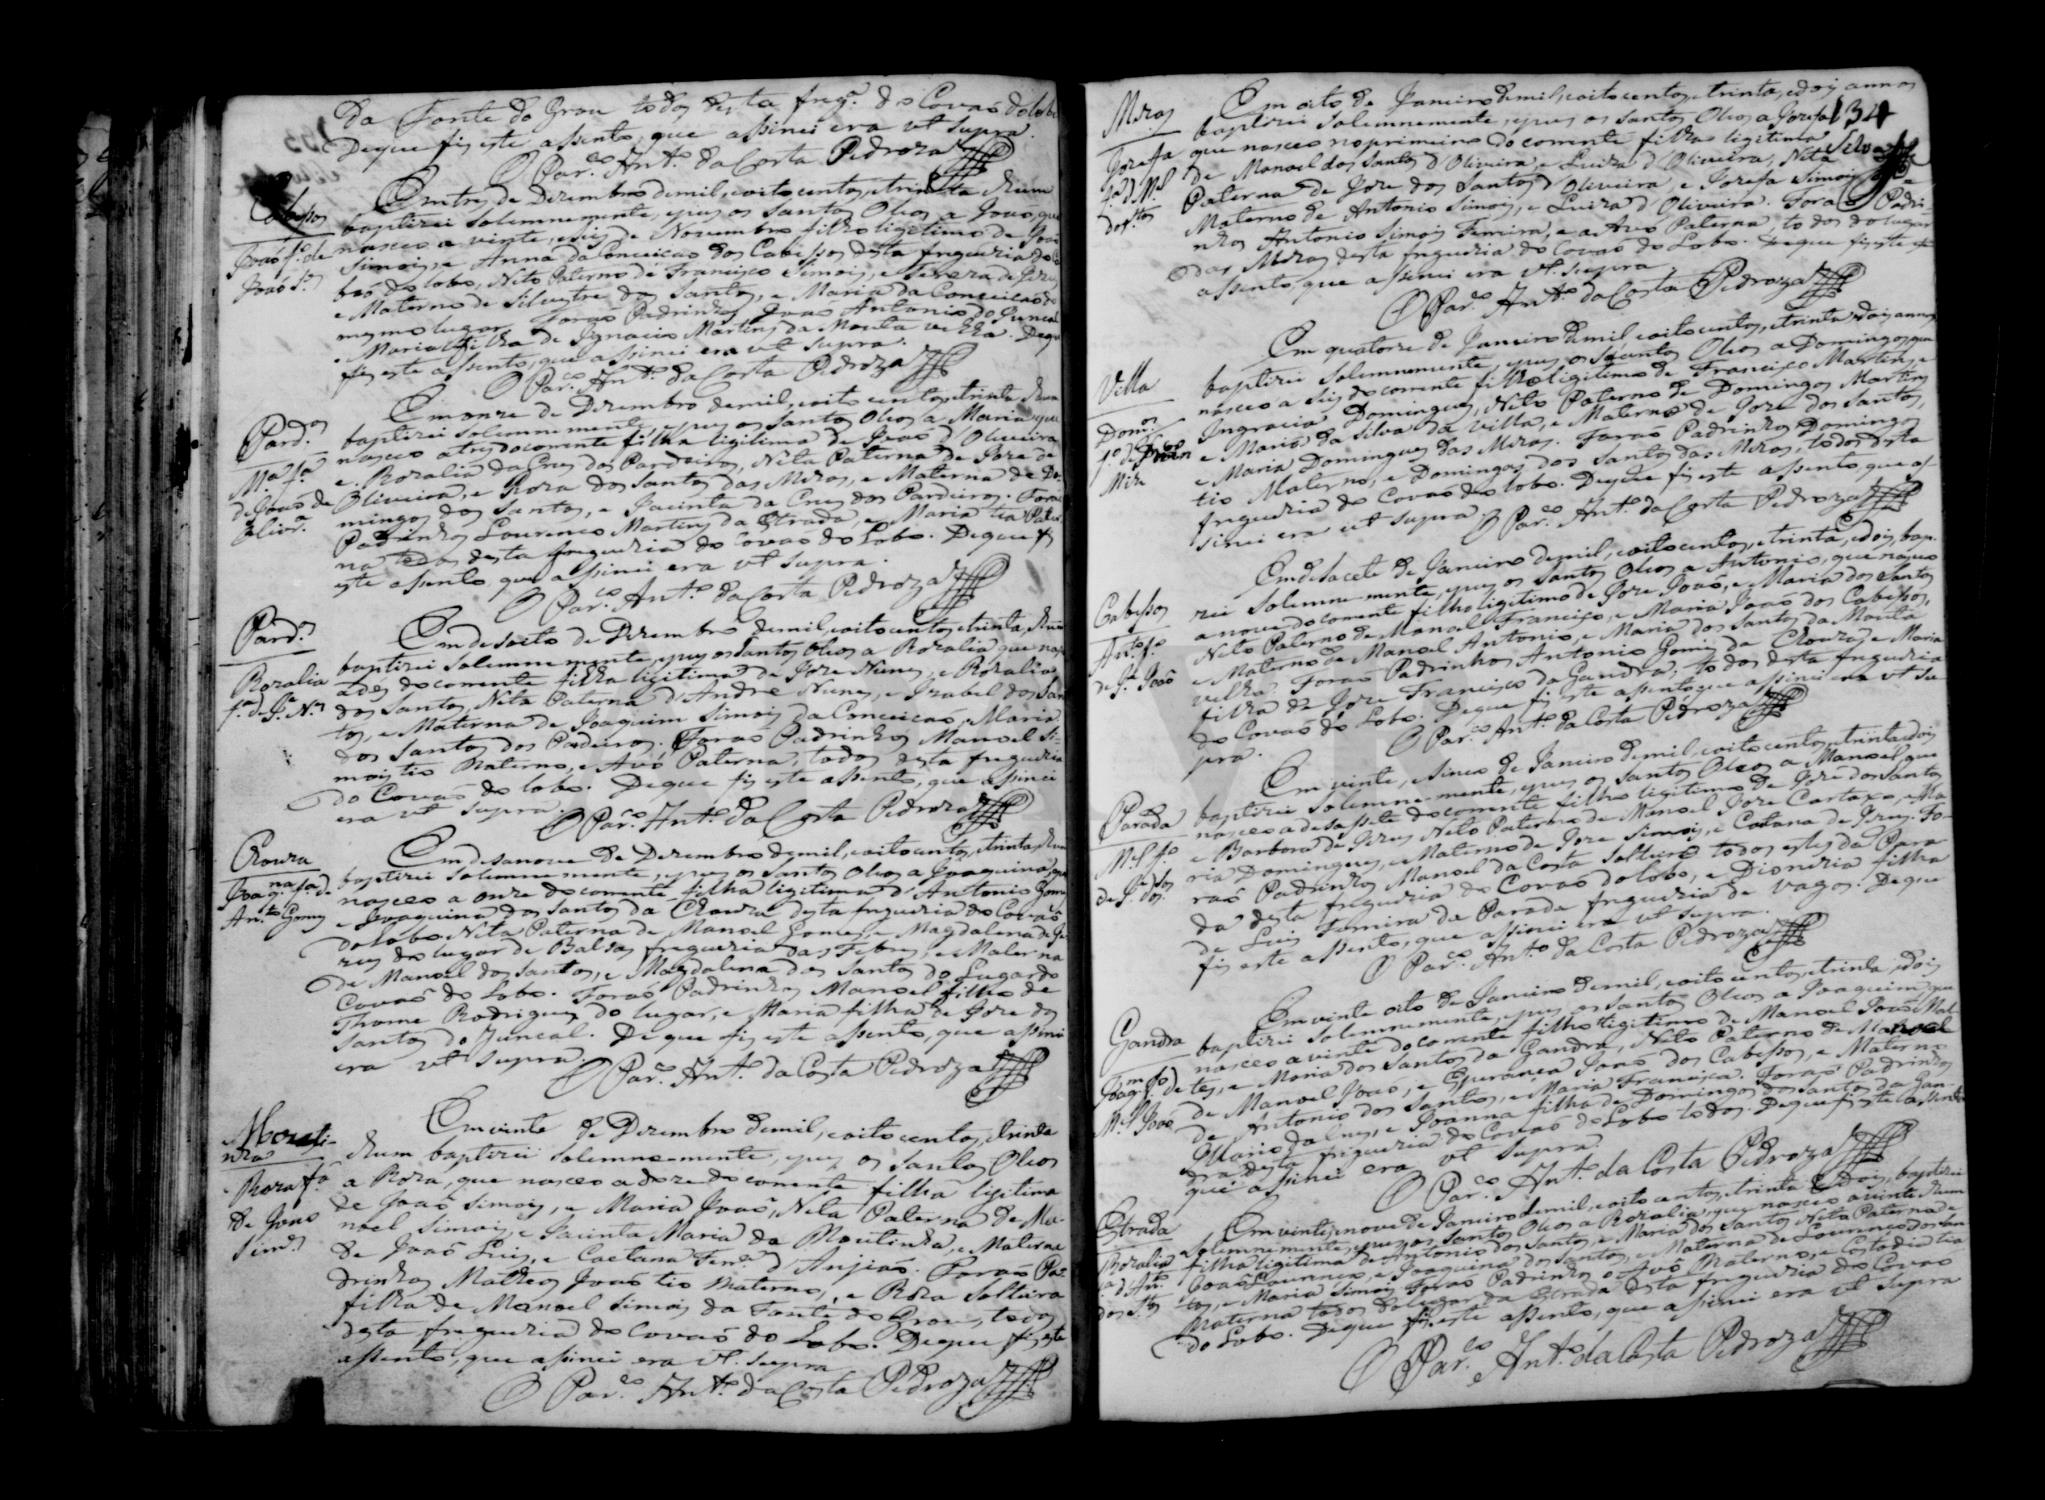 da Fonte do Grou todos desta freg.ª do Covaõ do Lobo
Deque fiz este assento, que assinei era ut supra.
O Par.º Ant.º da Costa Pedroza
Cabessos
João f.º de
João S.
Em tres de Dizembro demil, eoitocentos, etrinta ehum
baptizei solemnemente, epuz os Santos Oleos a Joaõ, que
nasceo a vinte, eseis de Novembro filho ligitimo de Joaõ
Simois, e Anna da Conceicaõ dos Cabessos desta freguezia do Co
vaõ do lobo, Neto Paterno de Francisco Simois, e
e Materno de Silvestre dos Santos, e Maria da Conceicaõ do
mesmo lugar. Foraõ Padrinhos Joaõ Antonio do Juncal
e Maria filha de Ignacio Martins da Mouta velha. Deque
fiz este assento, que assinei era ut supra.
O Par.º Ant.º da Costa Pedroza
Pard.os
M.ª f.ª
de Joaõ de
Oliv.ª
Em onze de Dizembro demil, eoito centos, etrinta ehum
baptizei solemnemente, epuz os Santos Oleos a Maria, que
nasceo atres docorrente filha ligitima de Joaõ d'Oliveira,
e Rozalia da Cruz dos Pardeiros, Neta Paterna de Joze de
Oliveira, e Roza dos Santos das Mezas, e Materna de Do
mingos dos Santos, e Jacinta da Cruz dos Pardieiros. Foraõ
Padrinhos Lourenco Martins da Estrada, e Maria tia Pater
na todos desta freguezia do Covaõ do Lobo. Deque fiz
este assento, que assinei era ut supra.
O Par.º Ant.º da Costa Pedroza
Pard.os
Rozalia
f.ª de J.e N.es
Em desoito de Dizembro demil, eoitocentos, etrinta, ehum
baptizei solemnemente, epuz os Santos Oleos a Rozalia que nasceo
a dez do corrente filha ligitima de Joze Nunes, e Rozalia
dos Santos, Neta Paterna d'Andre Nunes, e Izabel dos San
tos, e Materna de Joaquim Simois da Conceicaõ, e Maria
dos Santos dos Pardeiros. Foraõ Padrinhos Manoel Si-
mois tio Materno, e Avó Paterna, todos desta freguezia
do Covaõ do lobo. Deque fiz este assento, que assinei
era ut supra.
O Par.º Ant.º da Costa Pedroza
Clouza
Joaq.na f.ª de
Ant.º Gomes
Em desanove de Dizembro demil, eoitocentos, etrinta, ehum
baptizei solemnemente, epuz os Santos Oleos a Joaquina, que
nasceo a onze do corrente filha ligitima d'Antonio Gomes
e Joaquina dos Santos da Clouza desta freguezia do Covaõ
do Lobo Neta Paterna de Manoel Gomes, e Magdalena de Je
zus do lugar de Balsas freguezia das Febres, e Materna
de Manoel dos Santos, e Magdalena dos Santos do Lugar do
Covaõ do Lobo. Foraõ Padrinhos Manoel filho de
Thome Rodrigues do lugar, e Maria filha de Joze dos
Santos do Juncal. Deque fiz este assento, que assinei
era ut supra.
O Par.º Ant.º da Costa Pedroza
Moreti-
nha
Roza f.ª
de Joaõ
Sim.s
Em vinte de Dizembro demil, eoitocentos, etrinta
ehum baptizei solemne-mente, epuz os Santos Oleos
a Roza, que nasceo adoze do corrente filha ligitima
de Joaõ Simois, e Maria Joaõ, Neta Paterna de Ma-
noel Simois, e Jacinta Maria da Moutinha, e Materna
de Joaõ Luis, e Caetana Fer.ª d'Anjiaõ. Foraõ Pa-
drinhos Matheos Joaõ tio materno, e Roza solteira
filha de Manoel Simois da Fonte do Grou, todos
desta freguezia do Covaõ do Lobo. Deque fiz este
assento, que assinei era ut supra.
O Par.º Ant.º da Costa Pedroza
134
Mezas
Jozefa
f.ª de M.el
dos S.tos
Em oito de Janeiro demil, eoitocentos, etrinta, edois annos
baptizei solemnemente, epuz os Santos Oleos a Jozefa
que nasceo no primeiro do corrente filha ligitima
de Manoel dos Santos d'Oliveira, e Luiza d'Oliveira, Neta
Paterna de Joze dos Santos d'Oliveira, e Jozefa Simois
Materno de Antonio Simois, e Luiza d'Oliveira. Foraõ Padri-
nhos Antonio Simois Ferreira, e a Avó Paterna, todos do lugar
das Mezas desta freguezia do Covaõ do Lobo. Deque fiz este
assento, que assinei era ut supra
O Par.º Ant.º da Costa Pedroza
Villa
Dom.os
f.º de Fran
Em quatorze de Janeiro demil, eoitocentos, etrinta, edois annos
baptizei solemnemente, epuz os Santos Oleos a Domingos, que
nasceo a seis do corrente filho ligitimo de Francisco Martins, e
Ingracia Domingues, Neto Paterno de Domingos Martins
e Maria da Silva da Villa, e Materno de Joze dos Santos,
e Maria Domingues das Mezas. Foraõ Padrinhos Domingos
tio Materno, e Domingas dos Santos das Mezas, todos desta
freguezia do Covaõ do lobo. Deque fiz este assento, que as-
sinei era ut supra. O Par.º Ant.º da Costa Pedroza
Cabessos
Ant.º f.º
de J.e Joaõ
Em desacete de Janeiro demil, eoitocentos, etrinta, edois, bap-
tizei solemne-mente, epuz os Santos Oleos a Antonio, que nasceo
a nove do corrente filho ligitimo de Joze Joaõ, e Maria dos Santos
Neto Paterno de Manoel Francisco, e Maria Joaõ dos Cabessos,
e Materno de Manoel Antonio, e Maria dos Santos da Mouta
velha. Foraõ Padrinhos Antonio Gomes da Clouza, e Maria
filha de Joze Francisco da Gandra, todos desta freguezia
do Covaõ do Lobo. Deque fiz este assento, que assinei era ut su
pra. O Par.º Ant.º da Costa Pedroza
Parada
M.el f.º
de J.e dos
S.tos
Em vinte, esinco de Janeiro demil, eoitocentos, etrinta edois
baptizei solemne-mente, epuz os Santos Oleos a Manoel, que
nasceo a desassete do corrente filho ligitimo de Joze dos Santos
e Barbora de Jezus Neto Paterno de Manoel Joze Cartaxo, e Ma
ria Domingues, e Materno de Joze Simois, e Catana de Jezus. Fo-
raõ Padrinhos Manoel da Costa Solteiro todos estes da Para
da desta freguezia do Covaõ do lobo, e Dionizia filha
de Luis Ferreira da Parada freguezia de Vagos. Deque
fiz este assento, que assinei era ut supra.
O Par.º Ant.º da Costa Pedroza
Gandra
Joaq.m f.º de
M.el Joaõ
Em vinte oito de Janeiro demil, eoitocentos, etrinta, edois
baptizei solemnemente, epuz os Santos Oleos a Joaquim que
nasceo a vinte do corrente filho ligitimo de Manoel Joaõ Mal-
tes, e Maria dos Santos da Gandra, Neto Paterno de Manoel
de Manoel Joaõ, e Esperança Joaõ dos Cabessos, e Materno
de Antonio dos Santos, e Maria Francisca. Foraõ Padrinhos
Mario da Cruz, e Joanna filha de Domingos dos Santos da Gan-
dra desta freguezia do Covaõ do Lobo todos. Deque fiz este assento
que assinei era ut supra
O Par.º Ant.º da Costa Pedroza
Estrada
Rozalia
f.ª d'Ant.º
dos S.tos
Em vinte, enove de Janeiro demil, eoitocentos, etrinta Edois, baptizei
solemnemente, epuz os Santos Oleos a Rozalia, que nasceo avinte ehum
filha ligitima de Antonio dos Santos, e Maria dos Santos, Neta Paterna de
Joaõ Lourenco, e Joaquina dos Santos, e Materna de Lourenco dos San
tos, e Maria Simois Foraõ Padrinhos o Avó Materno, e Custodia tia
Materna todos do lugar da Estrada desta freguezia do Covaõ
do Lobo. Deque fiz este assento, que assinei era ut supra
O Par.º Ant.º da Costa Pedroza